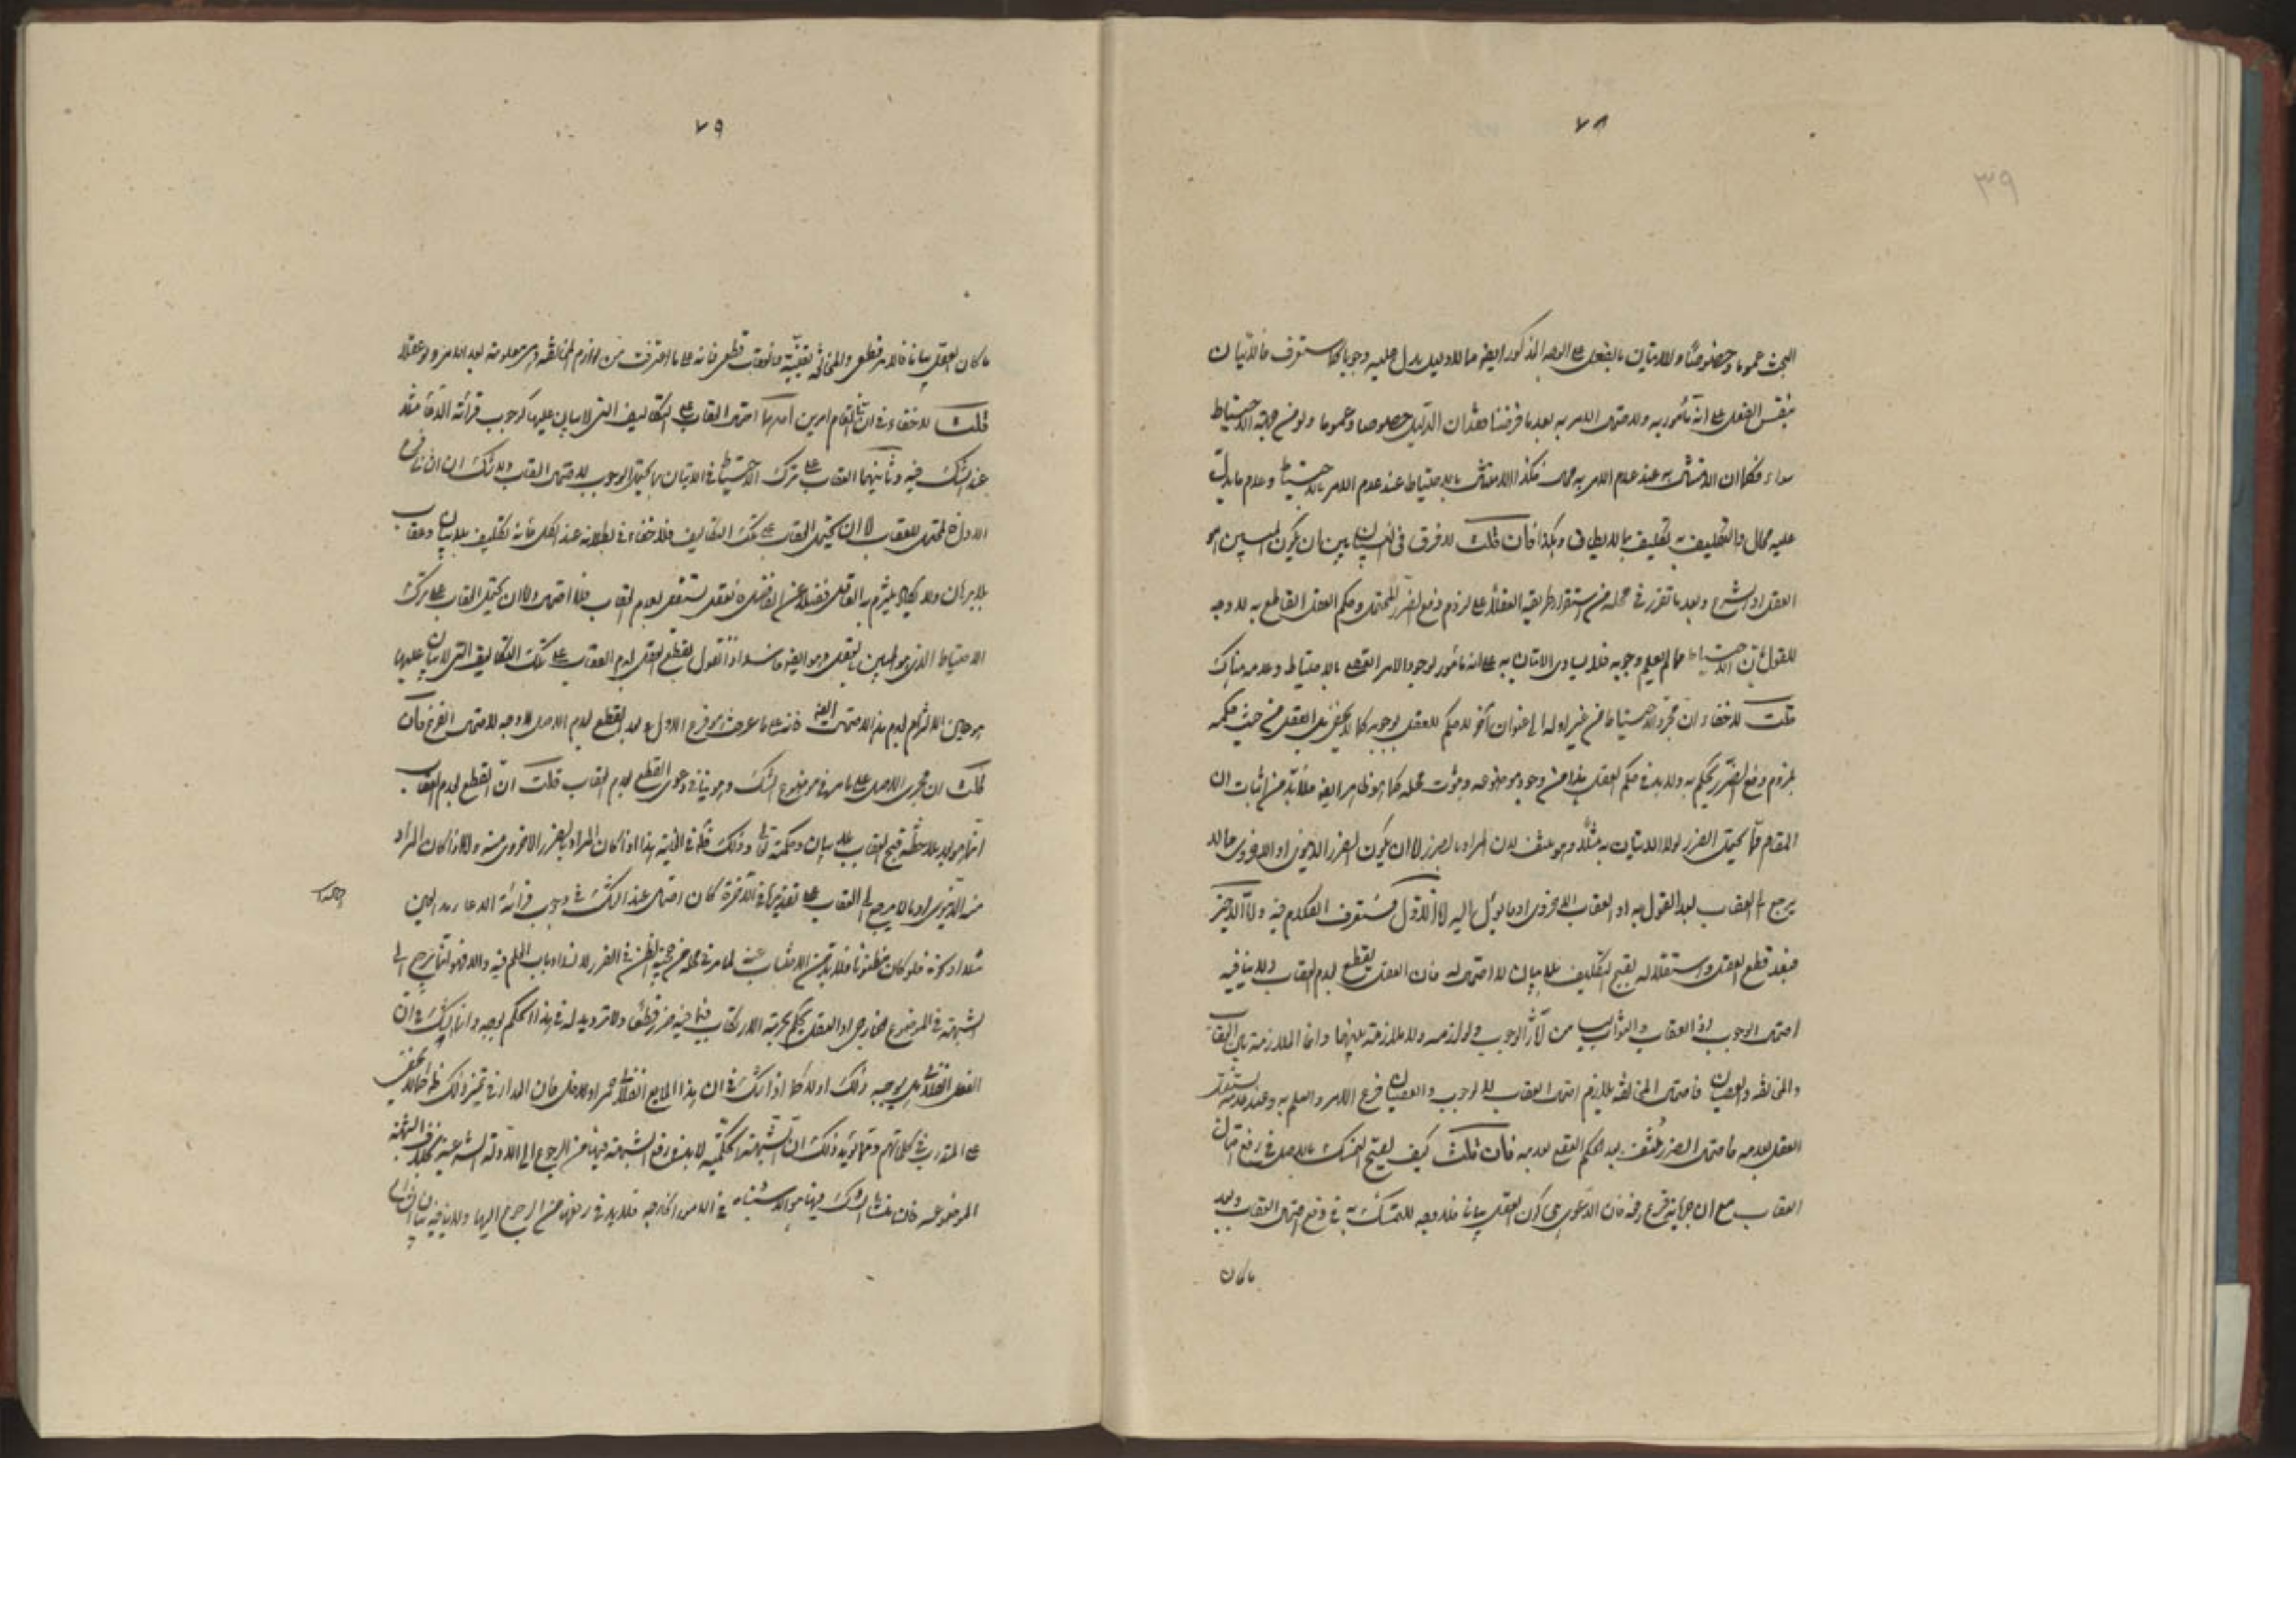 ٧٨
٣٩
البحث عموما وخصوصا والاتيان بالفعل على الوجه المذكور ايضا مما لا دليل يدل عليه وجوبا كما ستعرف فالاتيان
بنفس الفعل على انه مأمور به ولاحتمال الامر به بعد ما فرضنا فقدان الدليل خصوصا وعموما ولو من جهة الاحتياط
سواء فكما ان الامتثال به عند عدم الامر به محال فكذا الامتثال بالاحتياط عند عدم الامر بالاحتياط وعدم ما يدل
عليه محال والتكليف به تكليف بما لا يطاق وهكذا فان قلت لا فرق في البيان بين ان يكون المبين هو
العقل او الشرع وبعد ما تقرر في محله من استقرار طريقة العقلاء على لزوم دفع الضرر المحتمل وحكم العقل القاطع به لا وجه
للقول بان الاحتياط مما لم يعلم وجوبه فلا يساوي الاتيان به على انه مأمور لوجود الامر القطعي بالاحتياط وعدمه هناك
قلت لا خفاء ان مجرد الاحتياط من غير اوله الى عنوان آخر لا حكم للعقل بوجوبه كما لا يخفى بل العقل من حيث حكمه
بلزوم دفع الضرر يحكم به ولا بد في حكم العقل بهذا من وجود موضوعه وثبوت محله كما هو ظاهر ايضا فلا بد من اثبات ان
المقام مما يحتمل الضرر لولا الاتيان به مثلا وهو منتف لان المراد بالضرر اما ان يكون الضرر الدنيوي او الاخروي مما لا
يرجع الى العقاب بعد القول به او العقاب الاخروي او ما يؤل اليه اما الاول فستعرف الكلام فيه واما الاخير
فبعد قطع العقل واستقلاله بقبح التكليف بلا بيان لا احتمال له فان العقل يقطع بعدم العقاب ولا ينافيه
احتمال الوجوب اذ العقاب والثواب ليسا من آثار الوجوب ولوازمه ولا ملازمة بينهما وانما الملازمة بين العقاب
والمخالفة والعصيان فاحتمال المخالفة يلازم احتمال العقاب لا الوجوب والعصيان فرع الامر والعلم به وعند عدمه يستقل
العقل بعدمه فاحتمال الضرر منتف بعد الحكم القطع بعدمه فان قلت كيف يصح التمسك بالاصل في رفع احتمال
العقاب مع ان جريانه فرع رفعه فان الدعوى هي كون العقل بيانا فلا وجه للتمسك به في دفع احتمال العقاب وبعد
ما كان
٧٩
ما كان العقل بيانا فالامر قطعي والمخالفة يقينية والعقاب قطعي فانه على ما اعترفت من لوازم المخالفة وهي معلومة بعد الامر ولو عقلا
قلت لا خفاء في ان في المقام امرين احدهما احتمال العقاب على التكاليف التي لا بيان عليها كوجوب قرائة الدعاء مثلا
عند الشك فيه وثانيهما العقاب على ترك الاحتياط في الاتيان بما يحتمل الوجوب لاحتمال العقاب ولا شك ان الثاني فرع
الاول فالمحتمل للعقاب اما ان يحتمل العقاب على تلك التكاليف فلا خفاء في بطلانه عند الكل فانه تكليف بلا بيان وعقاب
بلا برهان ولا يكاد يلتزم به العاقل فضلا عن الفاضل فالعقل مستقل بعدم العقاب فلا احتمال واما ان يحتمل العقاب على ترك
الاحتياط الذي هو المبين بالعقل وهو ايضا فاسد اذ نقول بقطع العقل بعدم العقاب على تلك التكاليف التي لا بيان عليها
هو عين الالتزام بعدم هذا الاحتمال ايضا فانه على ما عرفت هو فرع الاول وبعد القطع بعدم الاصل لا وجه لاحتمال الفرع فان
قلت ان مجرى الاصل على ما مر في موضوع الشك وهو ينافي دعوى القطع بعدم العقاب قلت ان القطع بعدم العقاب
انما هو بعد ملاحظة قبح العقاب بلا بيان وحكمته تعالى وذلك هذا اذا كان المراد بالضرر الاخروي منه واما اذا كان المراد
منه الدنيوي او ما لا يرجع الى العقاب على تقديره في الآخرة كان احتمال عند الشك في وجوب قرائة الدعاء
مثلا او فلو كان مظنونا فلا بد من الاجتناب عنه لما مر في محله من حجية الظن في الضرر لانسداد باب العلم فيه والا فهو انما يرجع الى
الشبهة في الموضوع الخارجي اذ العقل يحكم بحرمة الارتكاب فيما فيه ضرر قطعا ولا ترديد له في هذا الحكم بوجه وانما الشك في ان
الفعل الفلاني هل يوجب ذلك او لا كما اذا شك في ان هذا المايع الفلاني خمر او لا خل فان المدار في تميز ذلك كما لا يخفى
على المتدرب في كلماتهم ومما يؤيد ذلك ان الشبهة الحكمية لا بد في رفع الشبهة فيها من الرجوع الى الادلة الشرعية بخلاف الشبهة
الموضوعية فان منشأ الشك فيها هو الاشتباه في الامور الخارجية فلا بد في رفعها من الرجوع اليها ولا ينافيه